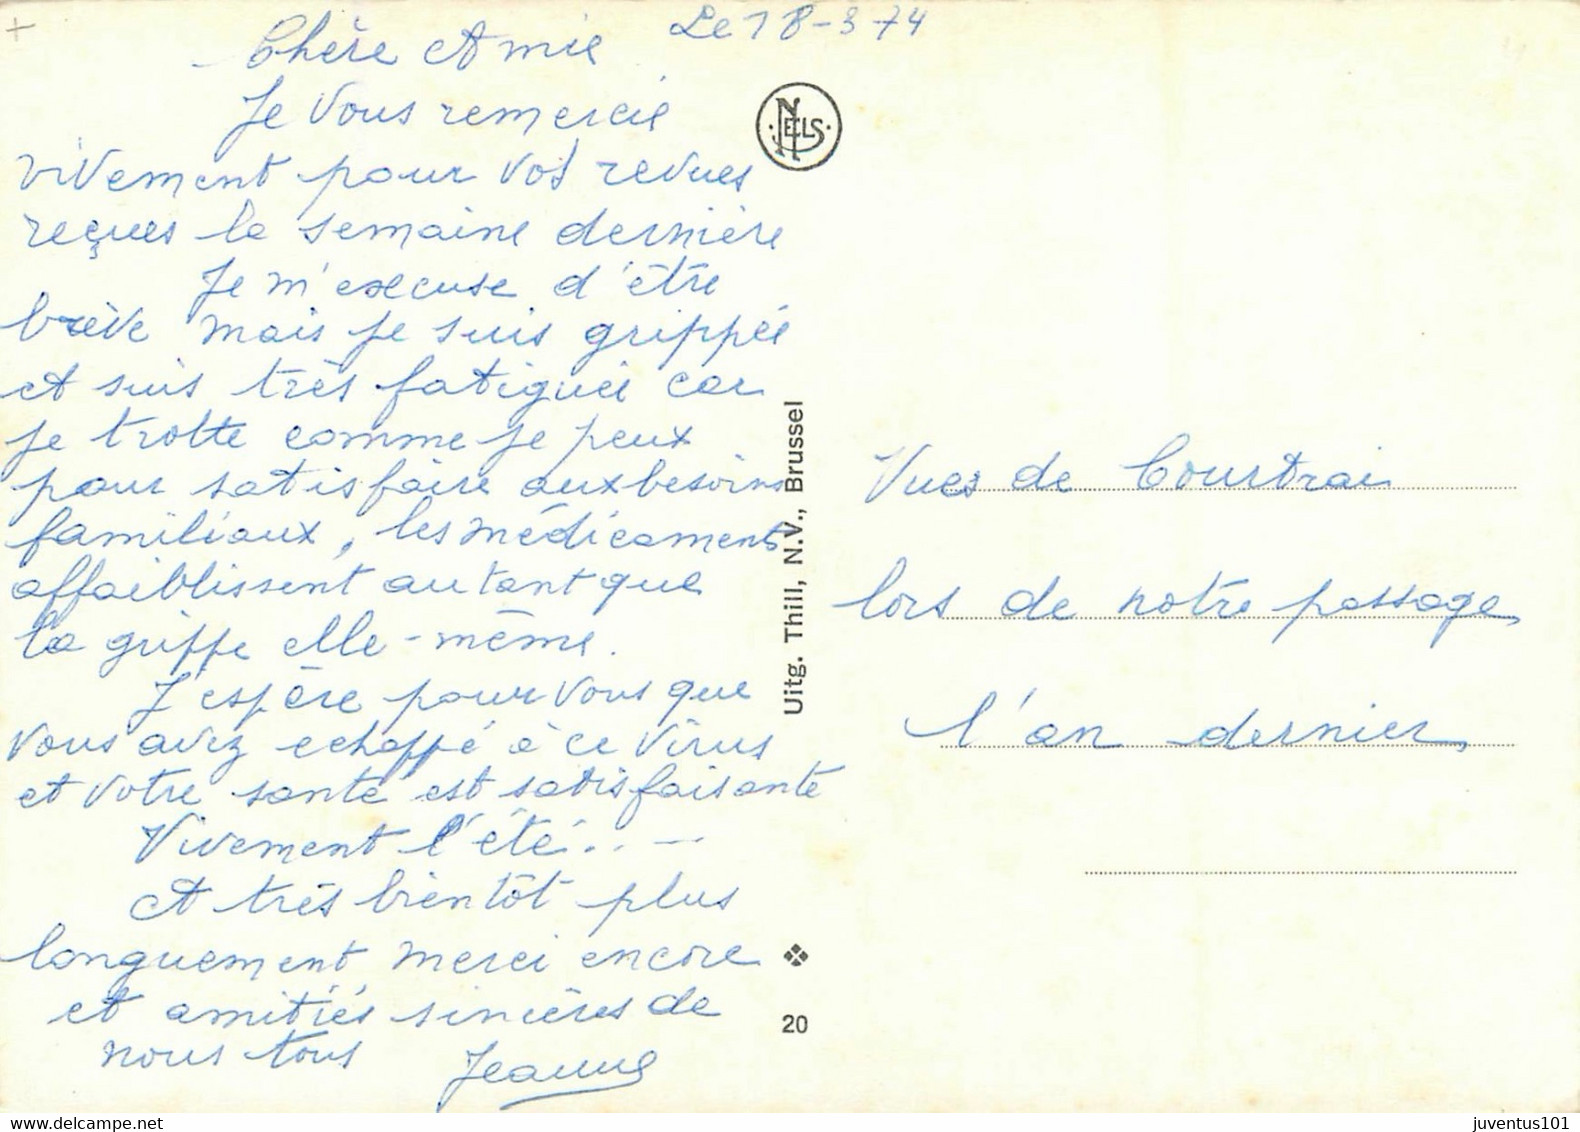 Le 18-3 74
Chère Amie
Je vous remercie
vivement pour vos revues
reçues la semaine dernière
Je m'excuse d'être
brève mais je suis grippée
et suis très fatiguée car
je trotte comme je peux
pour satisfaire aux besoins
familiaux, les médicaments
affaiblissent autant que
la grippe elle-même.
J'espère pour vous que
vous avez echappé à ce virus
et votre santé est satisfaisante
Vivement l'été....
et très bientôt plus
longuement merci encore
et amitiés sincères de
nous tous Jeanne
NELS
Uitg. Thill, N.V., Brussel
20
Vues de Courtrai
lors de notre passage
l'an dernier
delcampe.net
juventus101